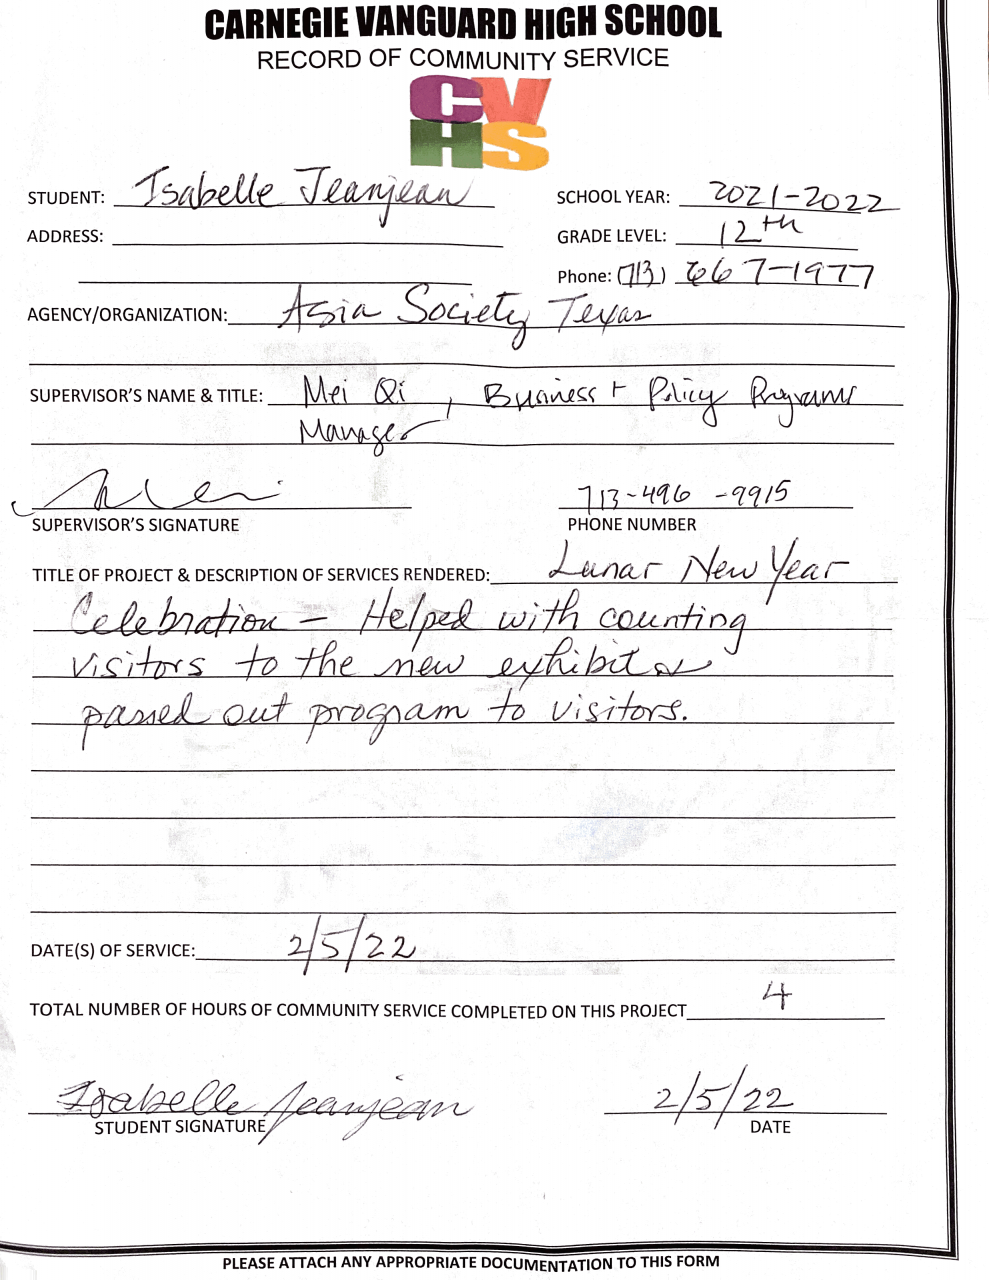 CARNEGIE VANGUARD HIGH SCHOOL
RECORD OF COMMUNITY SERVICE
CV
HS
STUDENT: Isabelle Jeanjean
SCHOOL YEAR: 2021-2022
ADDRESS:
GRADE LEVEL: 12th
Phone: (713) 667-1977
AGENCY/ORGANIZATION: Asia Society Texas
SUPERVISOR'S NAME & TITLE: Mei Qi, Business + Policy Programs
Manager
SUPERVISOR'S SIGNATURE
713-496-9915
PHONE NUMBER
TITLE OF PROJECT & DESCRIPTION OF SERVICES RENDERED: Lunar New Year
Celebration – Helped with counting
visitors to the new exhibit &
passed out program to visitors.
DATE(S) OF SERVICE: 2/5/22
TOTAL NUMBER OF HOURS OF COMMUNITY SERVICE COMPLETED ON THIS PROJECT 4
Isabelle Jeanjean
STUDENT SIGNATURE
2/5/22
DATE
PLEASE ATTACH ANY APPROPRIATE DOCUMENTATION TO THIS FORM